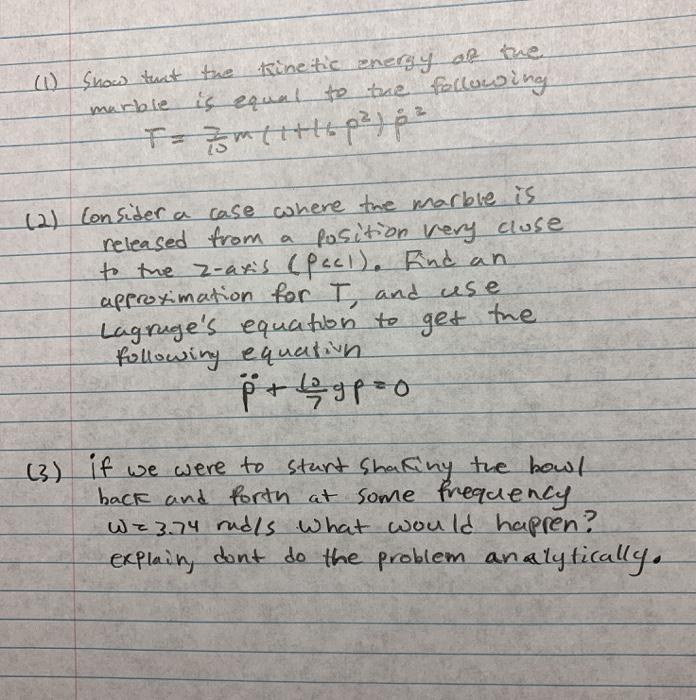 (1) Show that the kinetic energy of the
marble is equal to the following
T = 7/10 m (1+16 ρ²) ρ̇²
(2) Consider a case where the marble is
released from a position very close
to the z-axis (ρ<<1). Find an
approximation for T, and use
Lagruge's equation to get the
following equation
ρ̈ + 10/7 gρ = 0
(3) if we were to start shaking the bowl
back and forth at some frequency
ω = 3.74 rad/s what would happen?
explain, dont do the problem analytically.